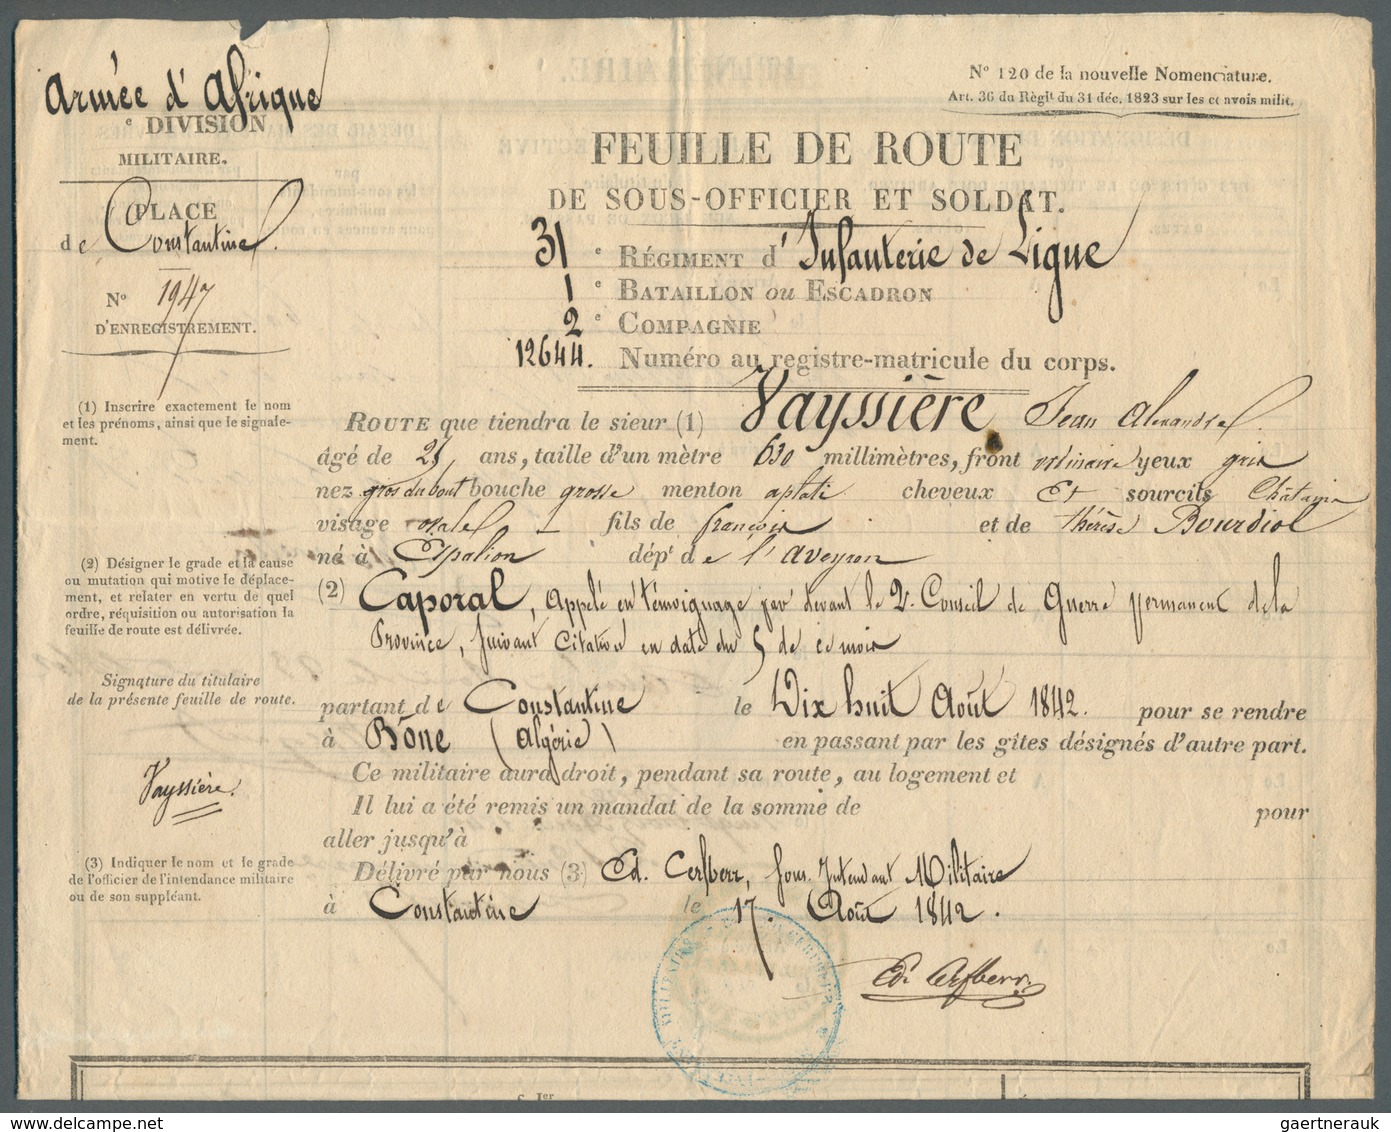 Armée d'Afrique
e DIVISION
MILITAIRE.
PLACE
de Constantine
N° 1947
D'ENREGISTREMENT.
(1) Inscrire exactement le nom
et les prénoms, ainsi que le signale-
ment.
(2) Désigner le grade et la cause
ou mutation qui motive le déplace-
ment, et relater en vertu de quel
ordre, réquisition ou autorisation la
feuille de route est délivrée.
Signature du titulaire
de la présente feuille de route.
Vayssière.
(3) Indiquer le nom et le grade
de l'officier de l'intendance militaire
ou de son suppléant.
N° 120 de la nouvelle Nomenclature.
Art. 36 du Règlt du 31 déc. 1823 sur les convois milit.
FEUILLE DE ROUTE
DE SOUS-OFFICIER ET SOLDAT.
31 e RÉGIMENT d'Infanterie de Ligne
1 e BATAILLON ou ESCADRON
2 e COMPAGNIE
12644. Numéro au registre-matricule du corps.
ROUTE que tiendra le sieur (1) Vayssière Jean Alexandre
âgé de ans, taille d'un mètre 630 millimètres, front ordinaire yeux gris
nez gros du bout bouche grosse menton aplati cheveux et sourcils Châtains
visage ovale fils de françois et de thérèse Bourdiol
né à Espalion dépt de l'aveyron
(2) Caporal, Appelé en témoignage par devant le 2e Conseil de Guerre permanent de la
Province, suivant Citation en date du 5 de ce mois
partant de Constantine le Dix huit Août 1842. pour se rendre
à Bône (Algérie) en passant par les gîtes désignés d'autre part.
Ce militaire aura droit, pendant sa route, au logement et
Il lui a été remis un mandat de la somme de pour
aller jusqu'à
Délivré par nous (3) Ed. Cerfberr, Sous Intendant Militaire
à Constantine le 17. Août 1842.
Ed. Cerfberr
gaertnerauk